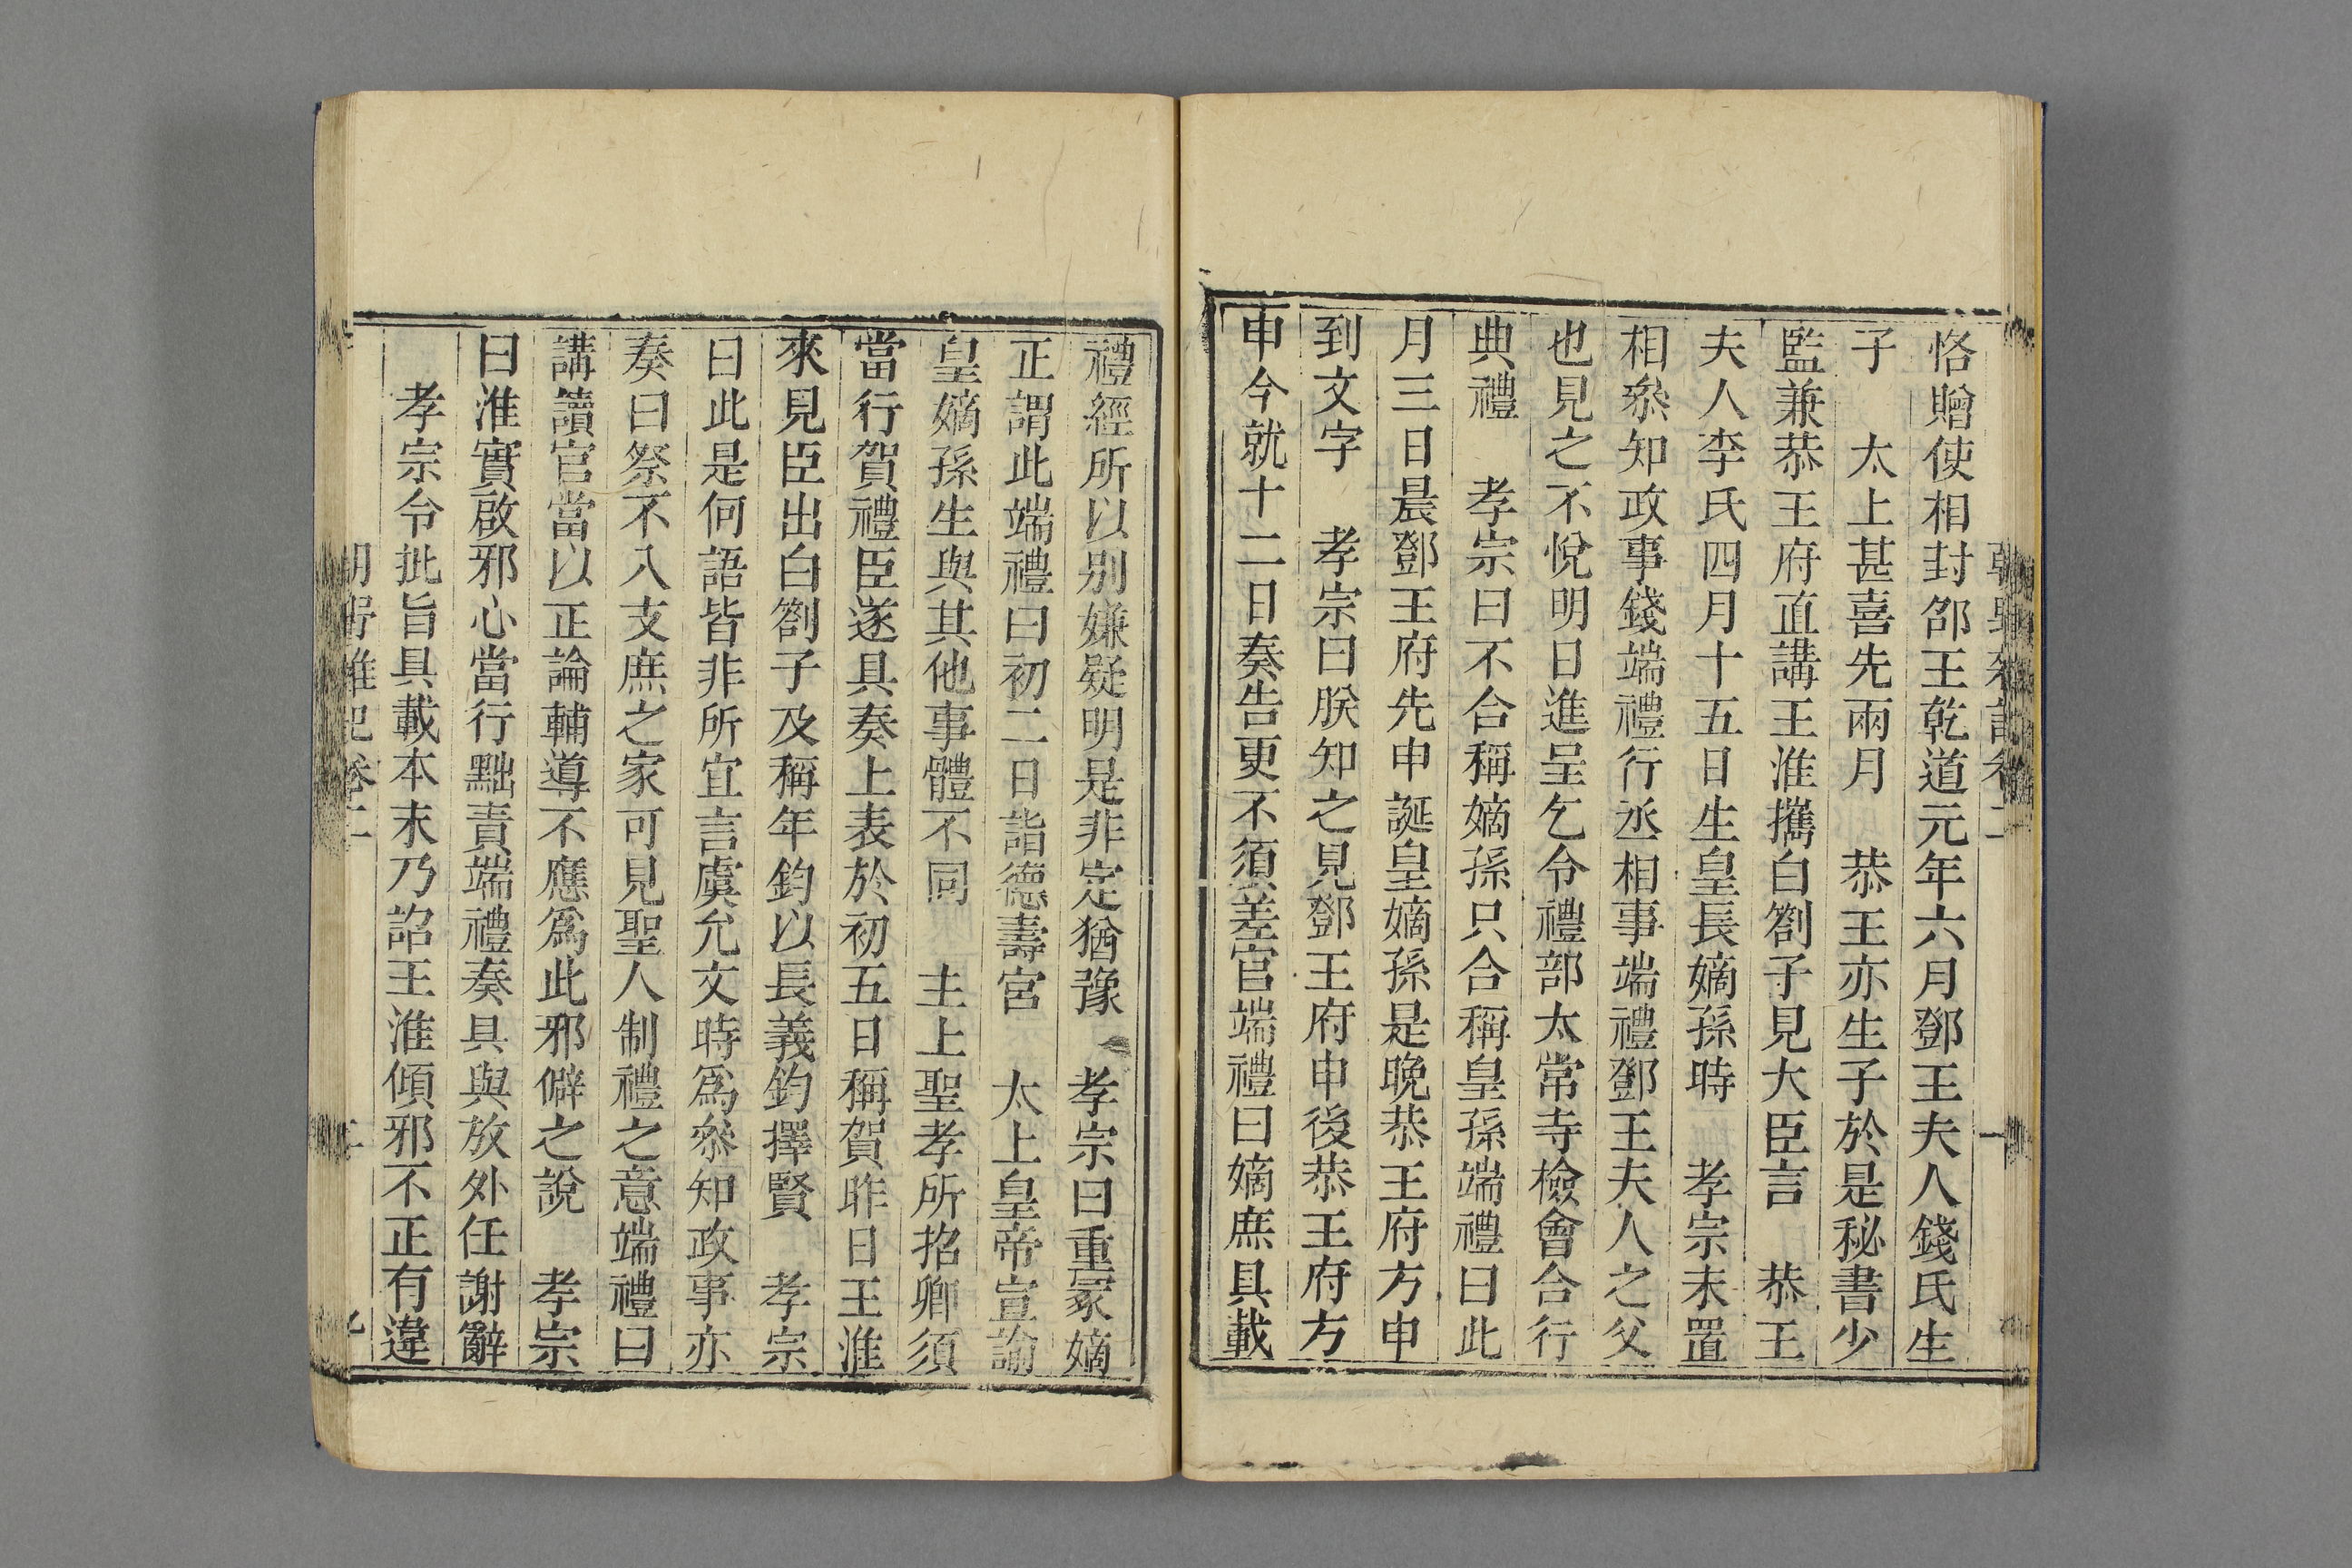 恪贈使相封郃王乾道元年六月鄧王夫人錢氏生
子　太上甚喜先兩月　恭王亦生子於是秘書少
監兼恭王府直講王淮攜白劄子見大臣言　恭王
夫人李氏四月十五日生皇長嫡孫時　孝宗未置
相叅知政事錢端禮行丞相事端禮鄧王夫人之父
也見之不悅明日進呈乞令禮部太常寺檢會合行
典禮　孝宗曰不合稱嫡孫只合稱皇孫端禮曰此
月三日晨鄧王府先申誕皇嫡孫是晚恭王府方申
到文字　孝宗曰朕知之見鄧王府申後恭王府方
申今就十二日奏告更不須差官端禮曰嫡庶具載
禮經所以別嫌疑明是非定猶豫　孝宗曰重冢嫡
正謂此端禮曰初二日詣德壽宮　太上皇帝宣諭
皇嫡孫生與其他事體不同　主上聖孝所招卿須
當行賀禮臣遂具奏上表於初五日稱賀昨日王淮
來見臣出白劄子及稱年鈞以長義鈞擇賢　孝宗
曰此是何語皆非所宜言虞允文時爲叅知政事亦
奏曰祭不入支庶之家可見聖人制禮之意端禮曰
講讀官當以正論輔導不應爲此邪僻之說　孝宗
曰淮實啟邪心當行黜責端禮奏具與放外任謝辭
孝宗令批旨具載本末乃詔王淮傾邪不正有違